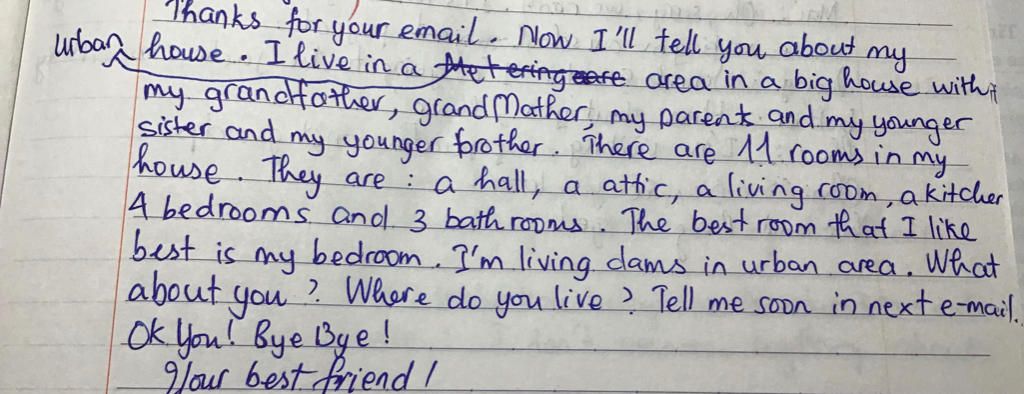 Thanks for your email. Now I'll tell you about my
urban house. I live in a area in a big house with
my grandfother, grandMather, my parents and my younger
sister and my younger brother. There are 11 rooms in my
house. They are : a hall, a attic, a living room, a kitchen
4 bedrooms and 3 bathrooms. The best room that I like
best is my bedroom. I'm living dams in urban area. What
about you ? Where do you live ? Tell me soon in next e-mail.
Ok You! Bye Bye !
Your best friend !